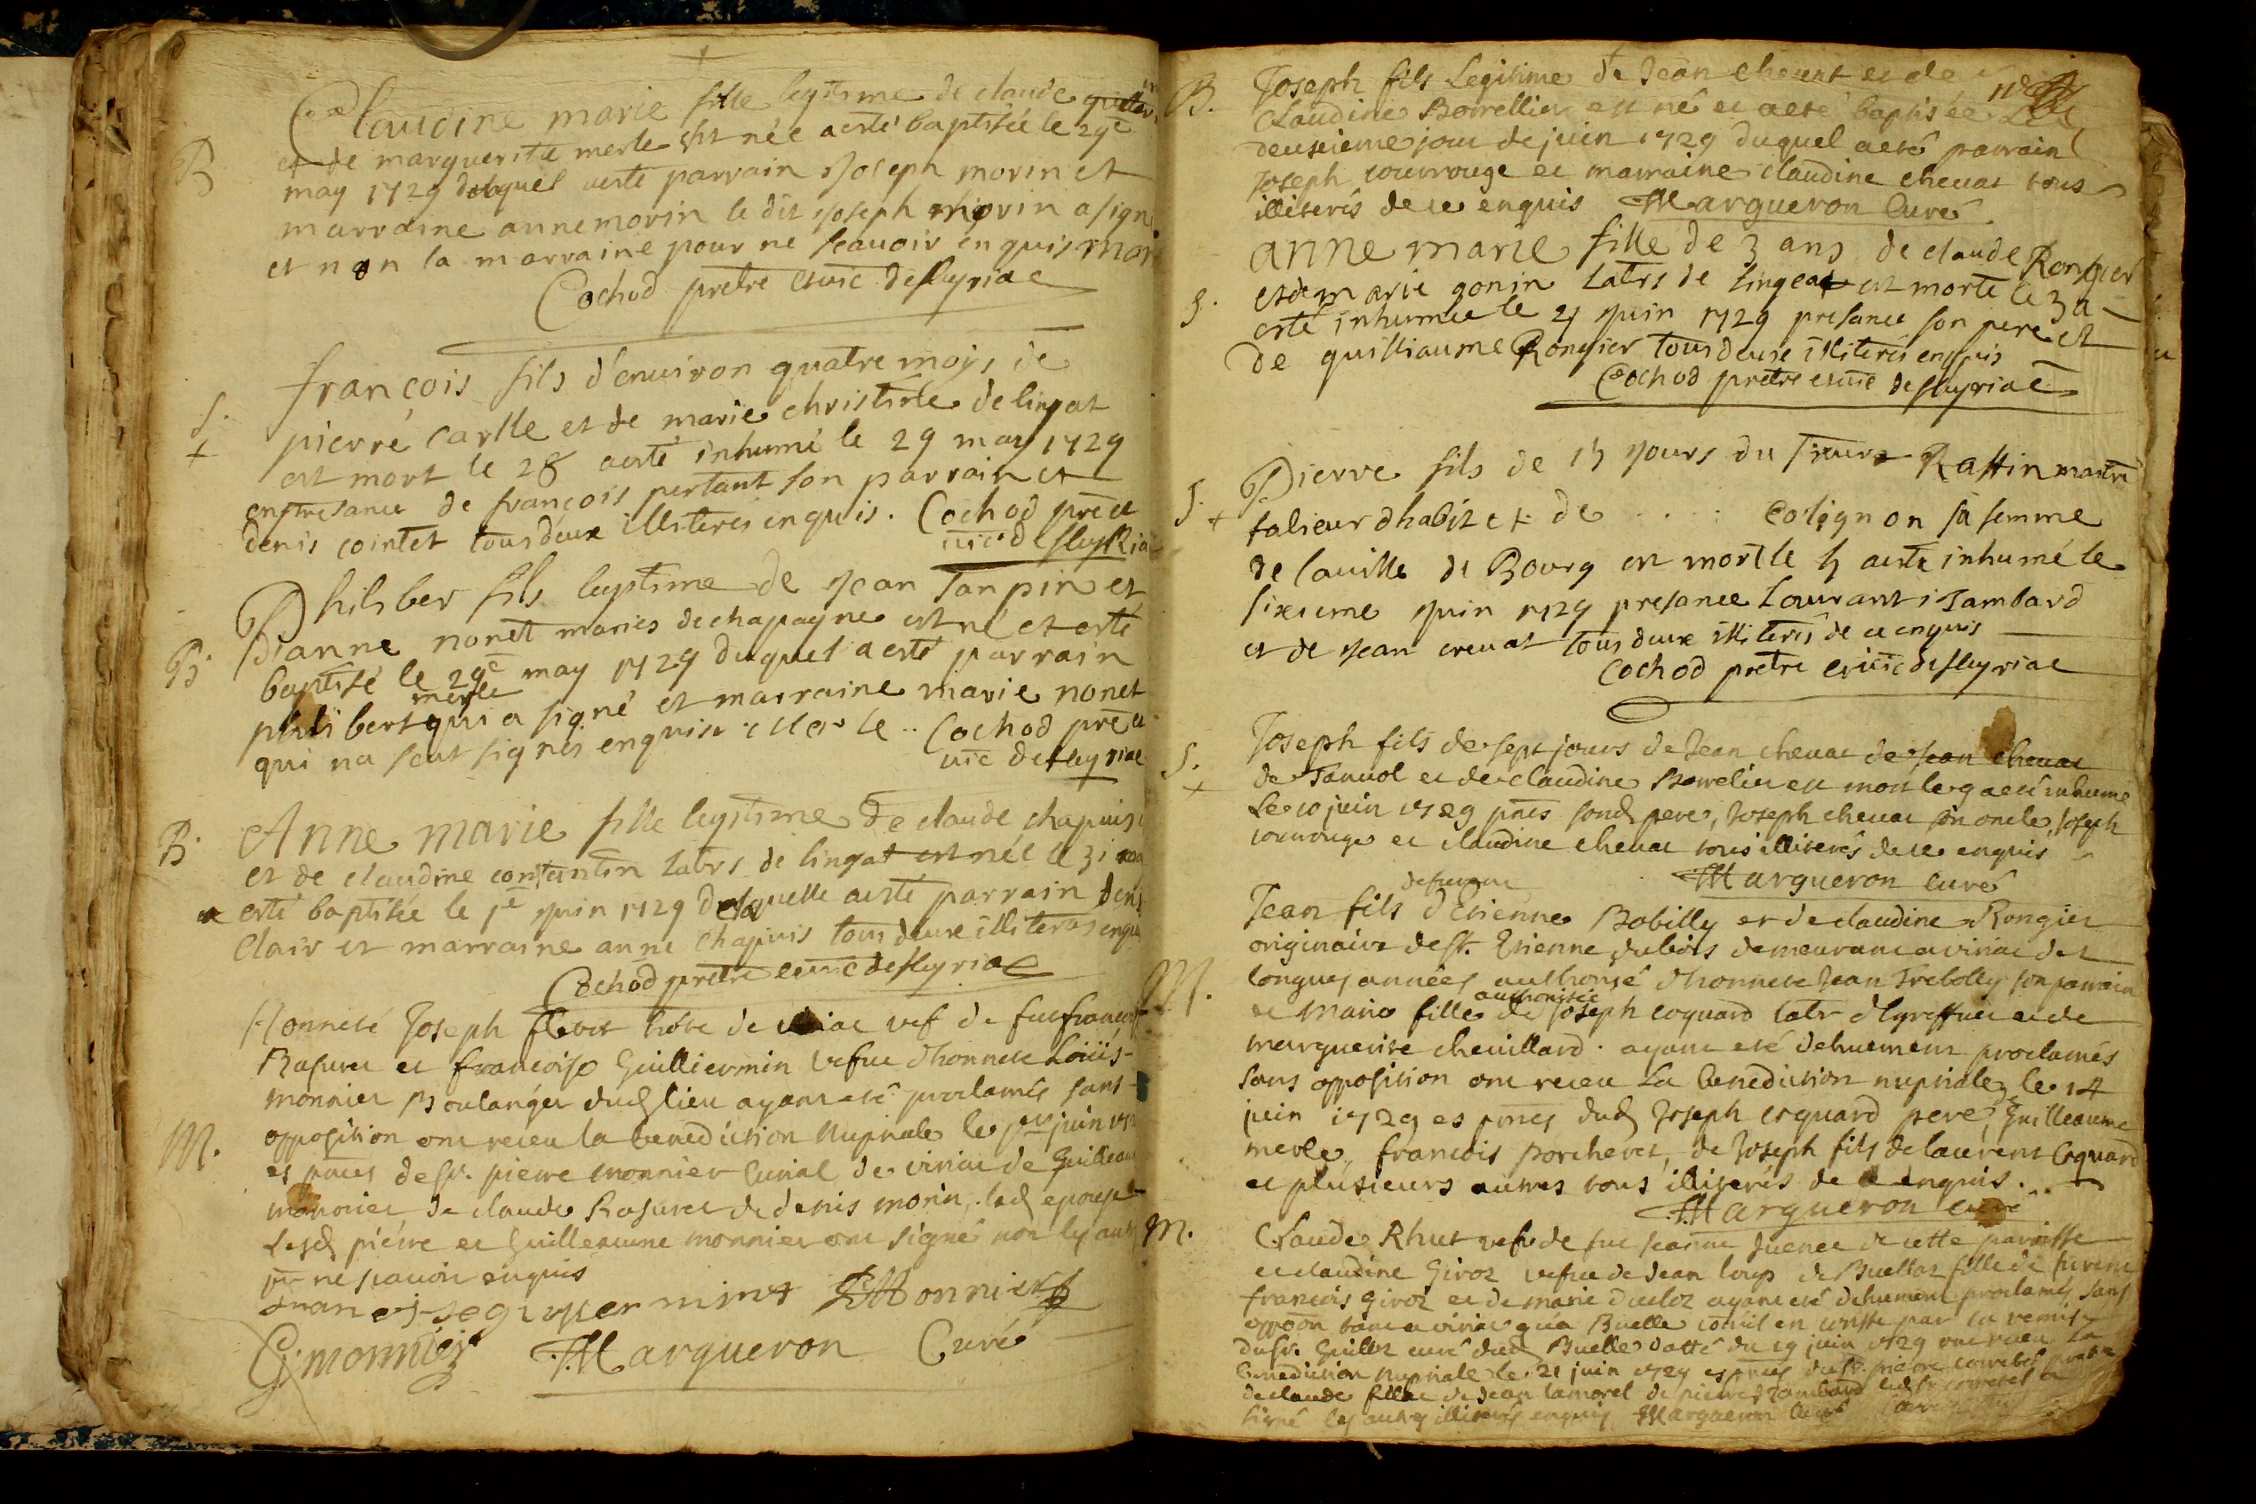 B
Claudine marie fille legitime de claude
et de marguerite merle est née aesté baptisée le 29e
may 1729 delaquel aesté parrain Joseph morin et
marraine anne morin le dit Joseph morin a signé
et non la marraine pour ne scavoir enquis mor
Cochod pretre et vic de flyriac
S.
françois fils d'environ quatre mois de
pierre carlle et de marie christinle de lingat
est mort le 28 aesté inhumé le 29 may 1729
en presance de françois pertant son parrain et
denis cointet tous deux illiteres enquis. Cochod pre et
vic de flyria
B.
Philiber fils legitime de Jean Tanpin et
Dianne nonet maries de chapagne est né et esté
baptisé le 29e may 1729 duquel aesté parrain
philibert merle qui a signé et marraine marie nonet
qui na sceut signer enquise .. Cochod pre et
vic de flyriac
B.
Anne marie fille legitime de claude chapuis
et de claudine constantin labrs de lingat est née le 31
a esté baptisée le 1e Juin 1729 delaquelle aesté parrain denis
Clair et marraine anne chapuis tous deux illiteras enqu
Cochod pretre et vic de flyriac
M.
Honneste Joseph hôte de viriac vef de feu francoise
Rasurel et francoise Guilliermin vefue d'honnete Loüis
monnier Boulanger dud lieu ayant esté proclamés sans
opposition ont receu la benediction Nuptiale le per juin 17
es pnces de Sr. pierre monnier Curial de viriac de Guilleau
monnier de claude Rasurel de denis morin, lad epouse
Lesd pierre et Guilleaume monnier ont signé non les autr
pr ne scavoir enquis
Monnier
G monnier Margueron Curé
B.
Joseph fils Legitime de Jean chevat et de
Claudine Borrellier est né et aeté baptisée Le
deuxieme jour de juin 1729 duquel aeté parrain
Joseph couvrouge et marraine claudine chevat tous
illiterés de ce enquis Margueron Curé
S.
Anne marie fille de 3 ans de claude Rongier
et de marie gonin labrs de lingeat est morte le 3 a
esté inhumee le 4 Juin 1729 presance son pere et
de guilliaume Rongier tous deux illiterés enquis
Cochod pretre et vic de flyriac
S.
Pierre fils de 15 Jours du sieur Raffin maitre
talieur dhabit et de . . . . colignon sa femme
de laville de Bourg est mort le 5 aesté inhumé le
sixieme Juin 1729 presance Laurant Jambard
et de Jean crevat tous deux illiterés de ce enquis
Cochod pretre et vic de flyriac
S.
Joseph fils de sept jours de Jean chevat de Jean chevat
de Tanvol et de claudine Borrelier est mort le 9 aeté inhumé
Le 10 juin 1729 pnts sond pere, Joseph chevat son oncle, Joseph
couvrouge et claudine chevat tous illiterés de ce enquis
Margueron curé
M.
Jean fils d'Etienne Bobilly et de claudine Rongier
originaire de St. Etienne dubois demeurant a viriac de
longues années authorisé d'honnete Jean Trebolly son parrain
et Marie fille authorisée de Joseph coquard labr et de
marguerite chevillard. ayant eté dehuement proclamés
sans opposition ont receu La benediction nuptiale le 14
juin 1729 es pnces dud Joseph coquard pere, Guilleaume
merle, francois porcheret, de Joseph fils de laurent Coquard
et plusieurs autres tous illiterés de ce enquis.
Margueron curé
M.
Claude Rhut vef de feu Jeanne Juenet de cette paroisse
et claudine Giroz vefue de Jean loup de Buellas fille de
francois Giroz et de marie ducloz ayant eté dehument proclamés sans
oppoon tant a viriac qua Buelle
du Sr. Guillot curé dud Buelle datté du 19 juin 1729 ont receu La
benediction Nuptiale le 21 juin 1729 es pnces du Sr. pierre
de claude fillet de Jean lamorel de pierre Jambard
signé les autres illiterés enquis Margueron curé